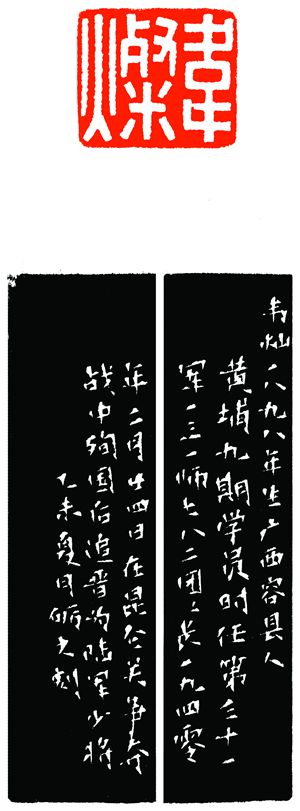 韋燦
韦灿一八九八年生广西容县人
黄埔九期学员时任第三十一
军一三一师七八二团〻长一九四零
年二月廿四日在昆仑关争夺
战中殉国后追晋为陆军少将
乙未夏月刻